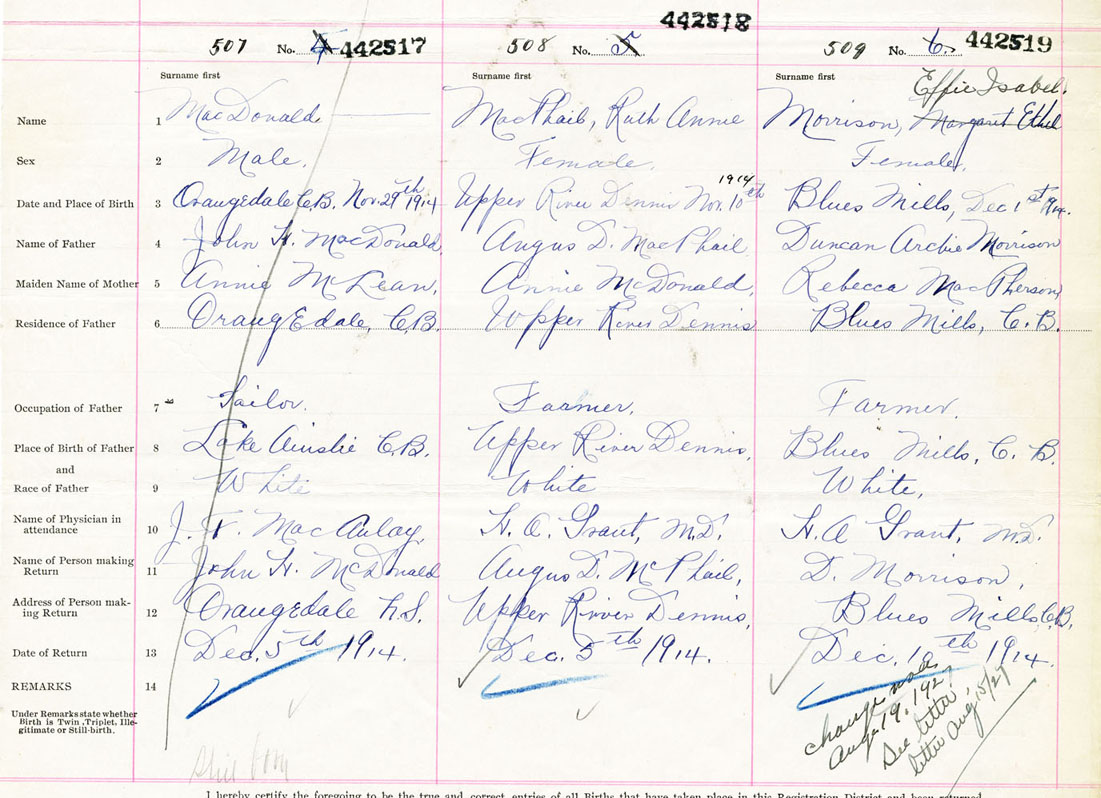 442518
507 No. 4 442517 508 No. 5 509 No. 6. 442519
Surname first Surname first Surname first Effie Isabel.
Name 1 MacDonald. MacPhail, Ruth Annie Morrison, Margaret Ethel
Sex 2 Male. Female. Female.
1914
Date and Place of Birth 3 Orangedale C.B. Nov. 29th 1914 Upper River Dennis Nov. 10th Blues Mills, Dec 1st 1914.
Name of Father 4 John H. MacDonald, Angus D. MacPhail Duncan Archie Morrison
Maiden Name of Mother 5 Annie McLean, Annie McDonald, Rebecca MacPherson
Residence of Father 6 OrangEdale, C.B. Upper River Dennis Blues Mills, C.B.
Occupation of Father 7 Tailor. Farmer. Farmer.
Place of Birth of Father 8 Lake Ainslie C.B. Upper River Dennis, Blues Mills, C.B.
and
Race of Father 9 White White White,
Name of Physician in
attendance 10 MacAulay, H. A. Grant, M.D. H. A Grant, M.D.
Name of Person making
Return 11 John H. McDonald Angus D. McPhail, D. Morrison,
Address of Person mak-
ing Return 12 Orangedale N.S. Upper River Dennis, Blues Mills C.B.
Date of Return 13 Dec. 5th 1914. Dec. 5th 1914. Dec. 10th 1914.
REMARKS 14 change made
Aug 19. 192
See letter
letter Aug 15/27
Under Remarks state whether
Birth is Twin, Triplet, Ille-
gitimate or Still-birth.
Still born
I hereby certify the foregoing to be the true and correct entries of all Births that have taken place in this Registration District and been returned